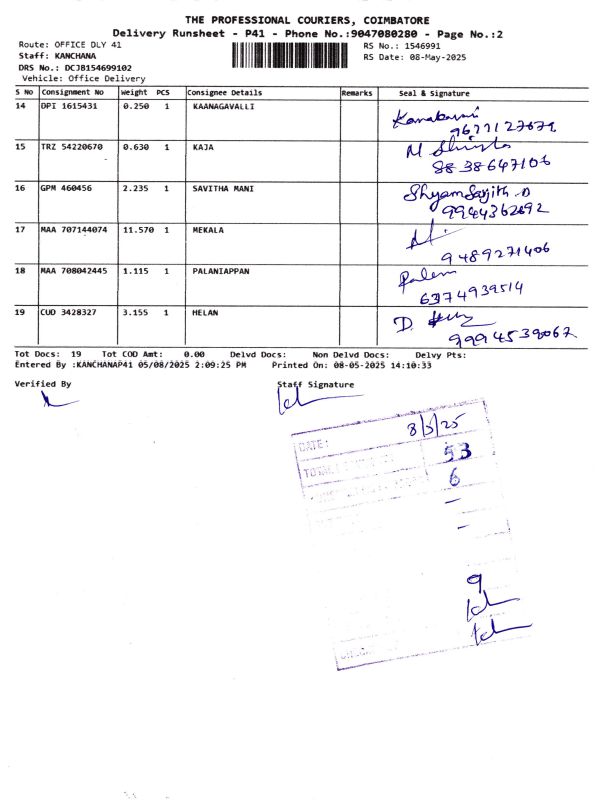 THE PROFESSIONAL COURIERS, COIMBATORE
Delivery Runsheet - P41 - Phone No.:9047080280 - Page No.:2
Route: OFFICE DLY 41
RS No.: 1546991
Staff: KANCHANA
RS Date: 08-May-2025
DRS No.: DCJB154699102
Vehicle: Office Delivery
S No Consignment No Weight PCS Consignee Details Remarks Seal & Signature
14 DPI 1615431 0.250 1 KAANAGAVALLI
15 TRZ 54220670 0.630 1 KAJA
8838647106
16 GPM 460456 2.235 1 SAVITHA MANI
9944362892
17 MAA 707144074 11.570 1 MEKALA
9489271406
18 MAA 708042445 1.115 1 PALANIAPPAN
6374939514
19 CUD 3428327 3.155 1 HELAN
9994539062
Tot Docs: 19 Tot COD Amt: 0.00 Delvd Docs: Non Delvd Docs: Delvy Pts:
Entered By :KANCHANAP41 05/08/2025 2:09:25 PM Printed On: 08-05-2025 14:10:33
Verified By
Staff Signature
DATE: 8/5/25
53
6
9